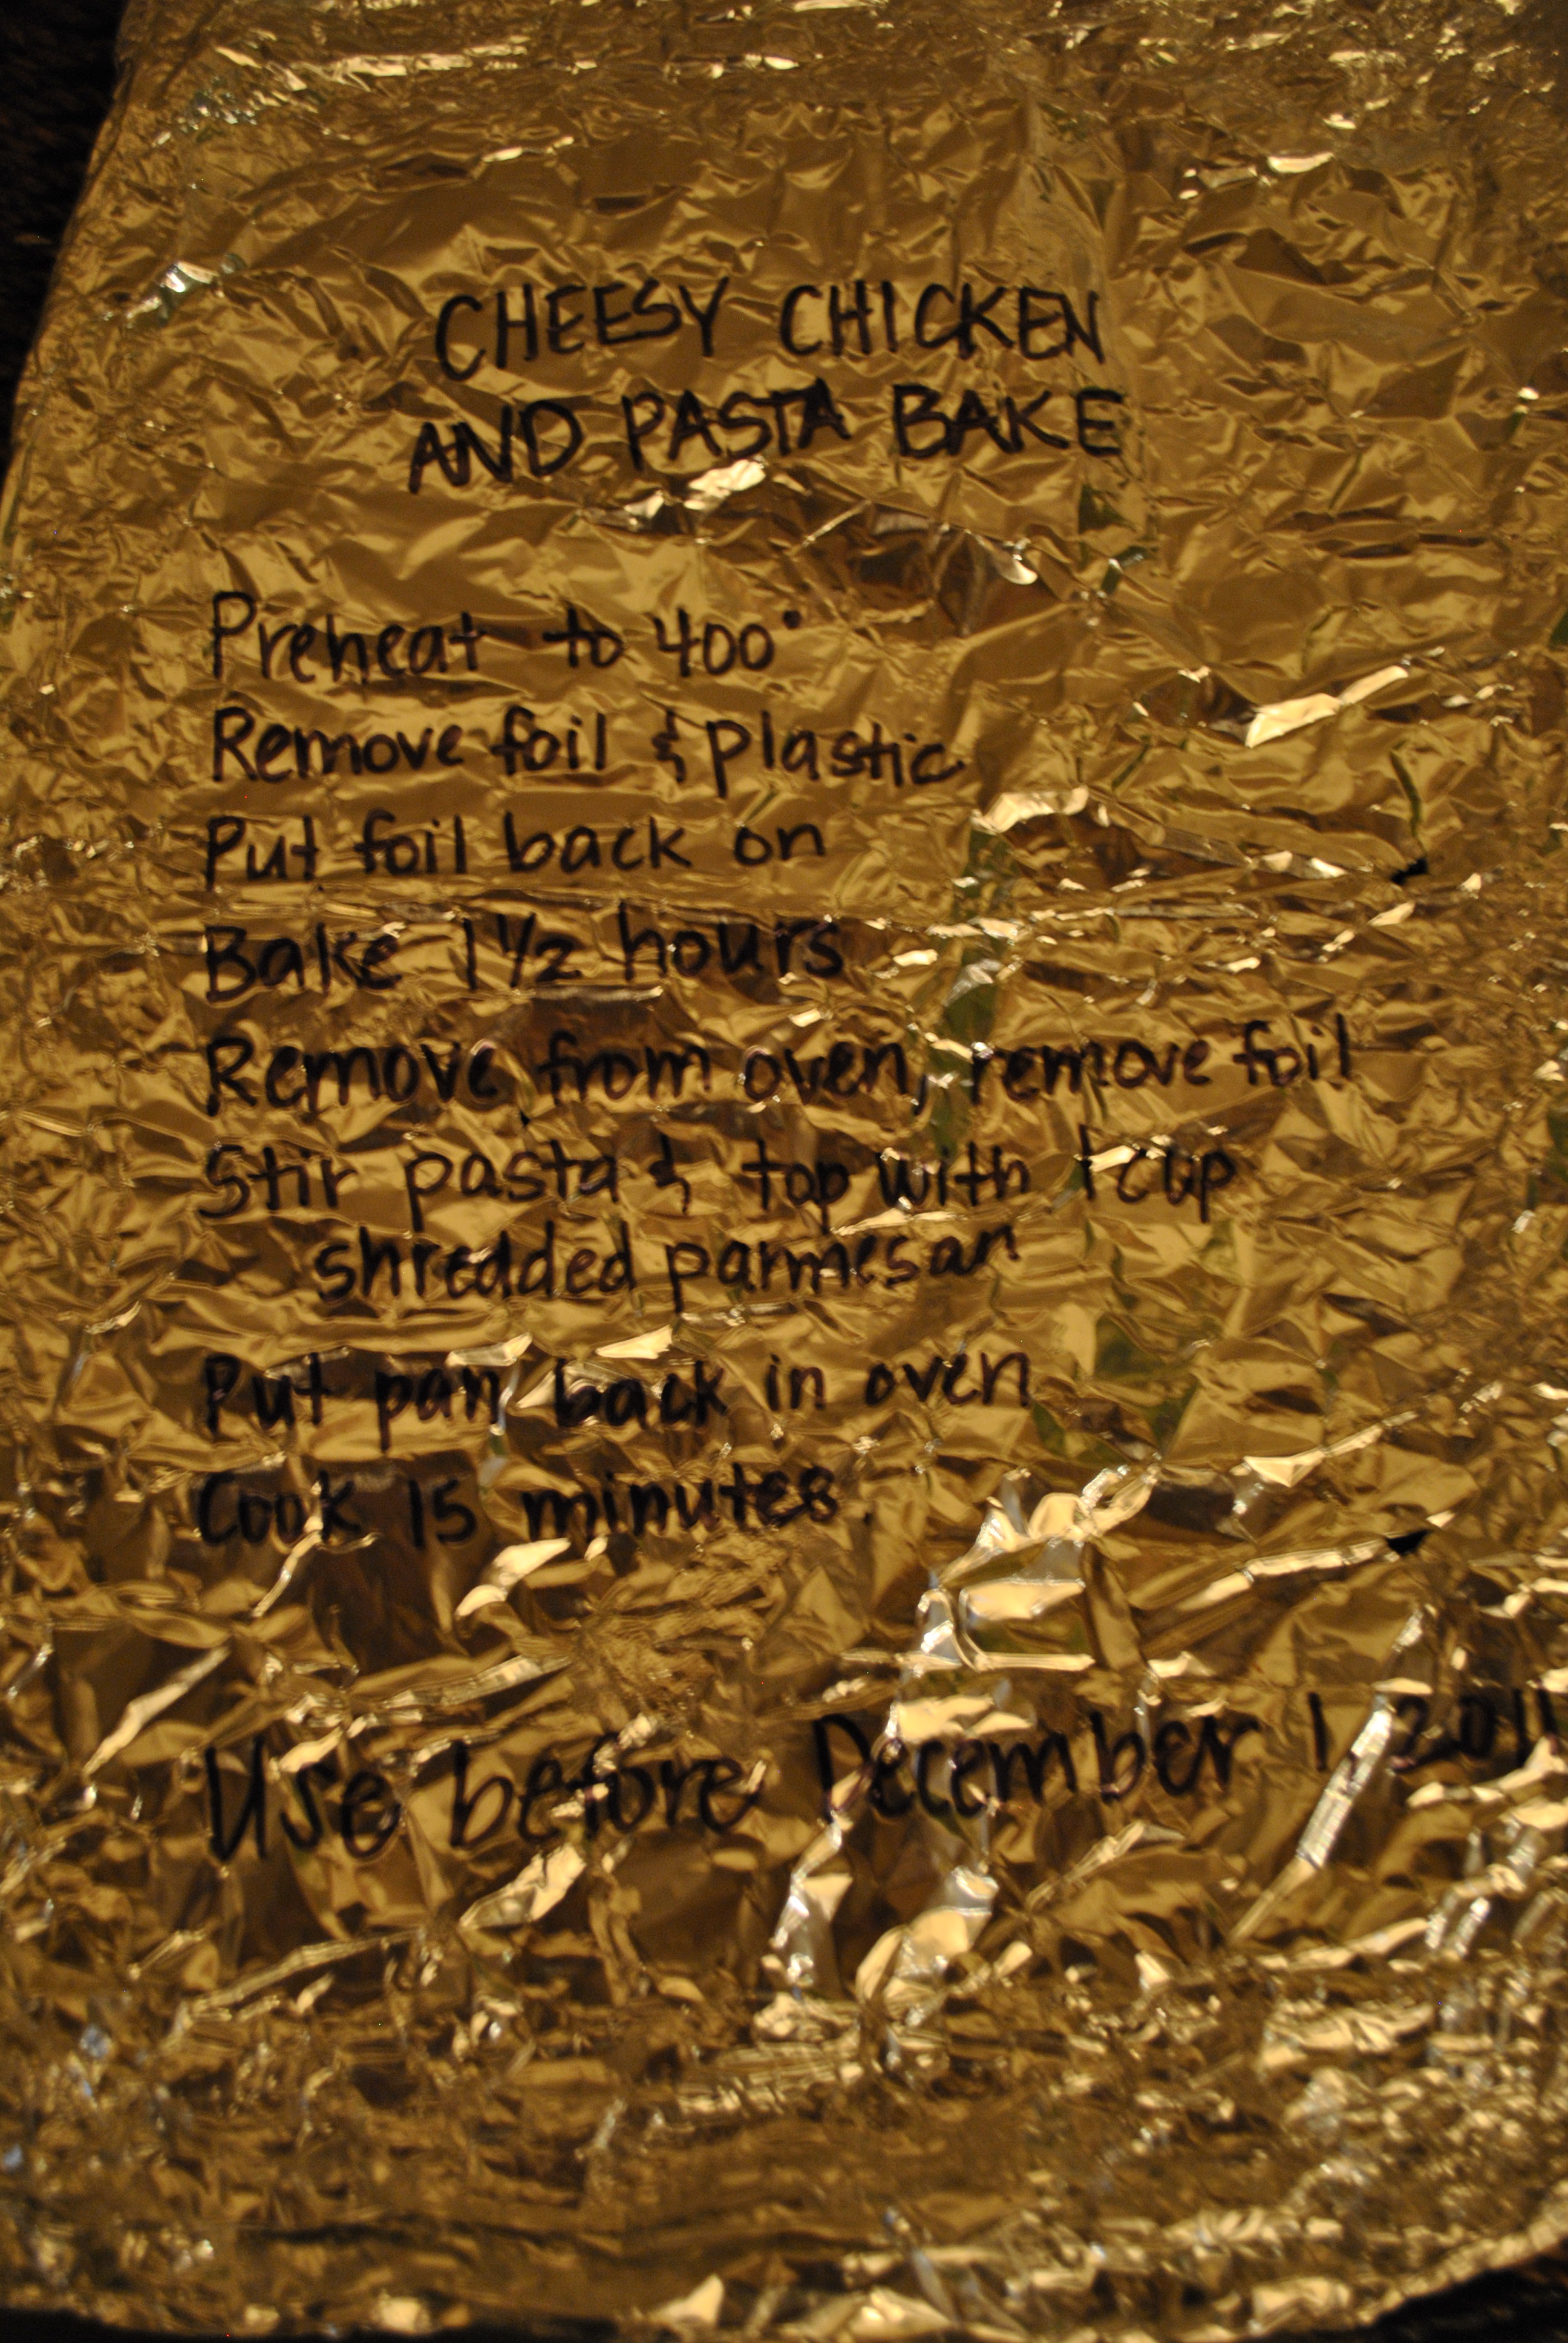 CHEESY CHICKEN
AND PASTA BAKE
Preheat to 400°
Remove foil & plastic
Put foil back on
Bake 1 1/2 hours
Remove from oven, remove foil
Stir pasta & top with 1 cup
shredded parmesan
Put pan back in oven
Cook 15 minutes.
Use before December 1, 2011